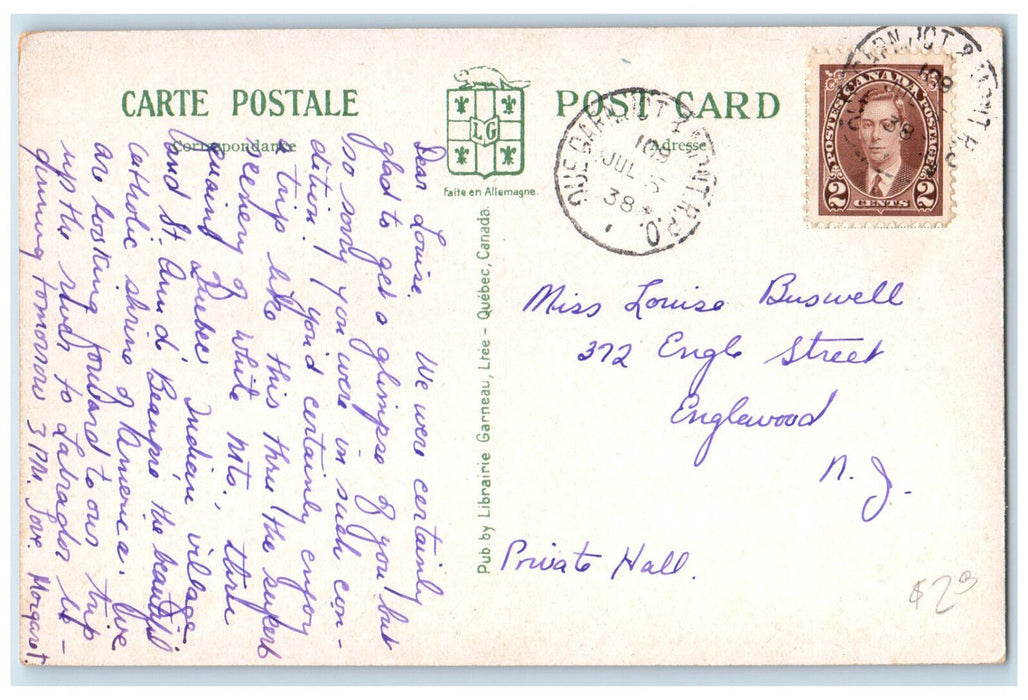 CARTE POSTALE
Correspondance
LG
Faite en Allemagne.
POST CARD
Adresse
QUE. 
109
JUL 5
38
MONT. R.P.O.
JCT. & MONT. R
109
38
POSTES CANADA POSTAGE
2 CENTS 2
Dear Louise. We were certainly
glad to get a glimpse of you but
so sorry you were in such con-
dition. You'd certainly enjoy
a trip like this thru the superb
scenery of White Mts., thru
Quebec Indian village
and St. Ann d' Beaupré the beautiful
Catholic shrine of America. We
are looking forward to our trip
up the river to Labrador
tomorrow 3 P.M. Love Margaret.
Pub by Librairie Garneau, Ltée - Québec, Canada.
Miss Louise Buswell
372 Engle Street
Englewood
N. J.
Private Hall.
$2